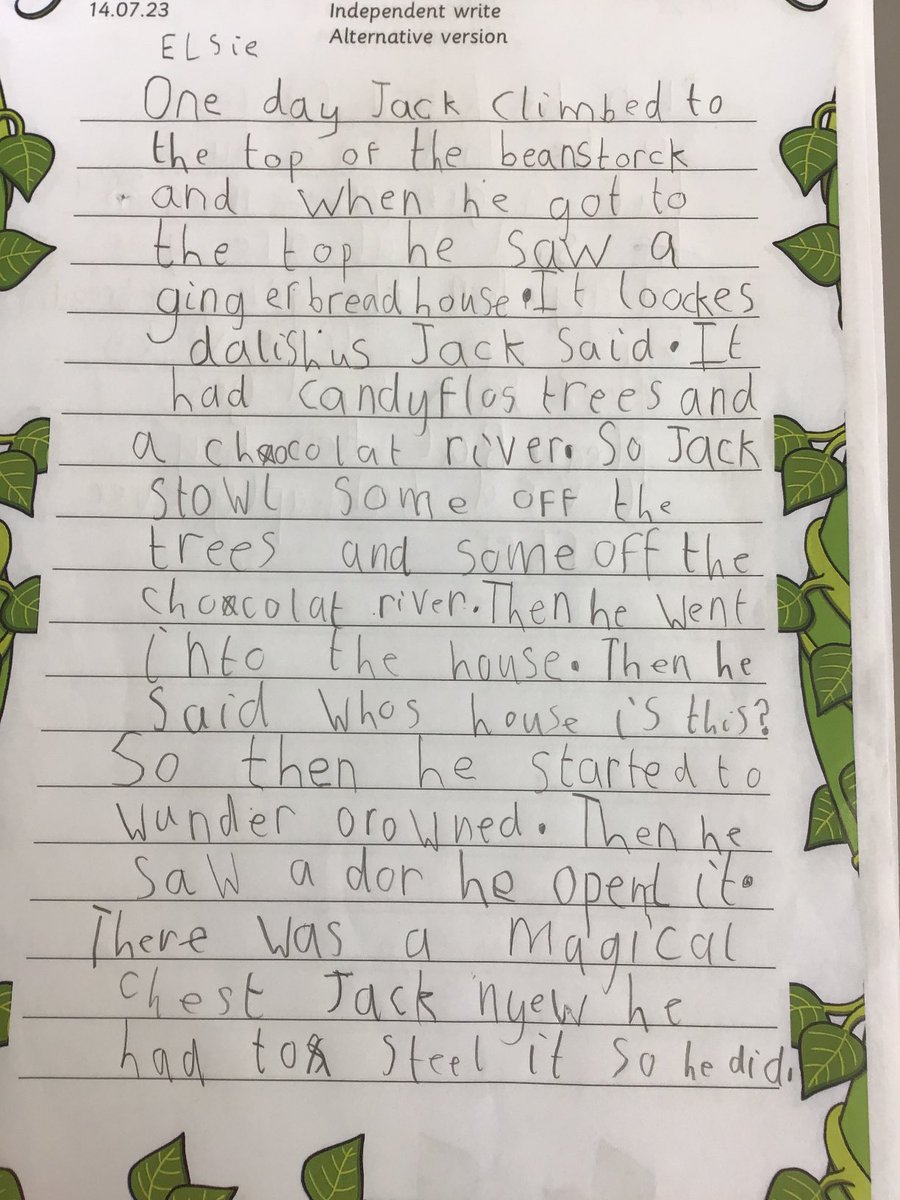 14.07.23
Independent write
Alternative version
ELSie
One day Jack climbed to
the top of the beanstorck
and when he got to
the top he saw a
gingerbread house. It loockes
dalishus Jack said. It
had candyflos trees and
a chocolat river. So Jack
stowl some off the
trees and some off the
chocolat river. Then he went
into the house. Then he
said whos house is this?
So then he started to
wunder orowned. Then he
saw a dor he openl it.
There was a magical
chest Jack nyew he
had to steel it so he did.